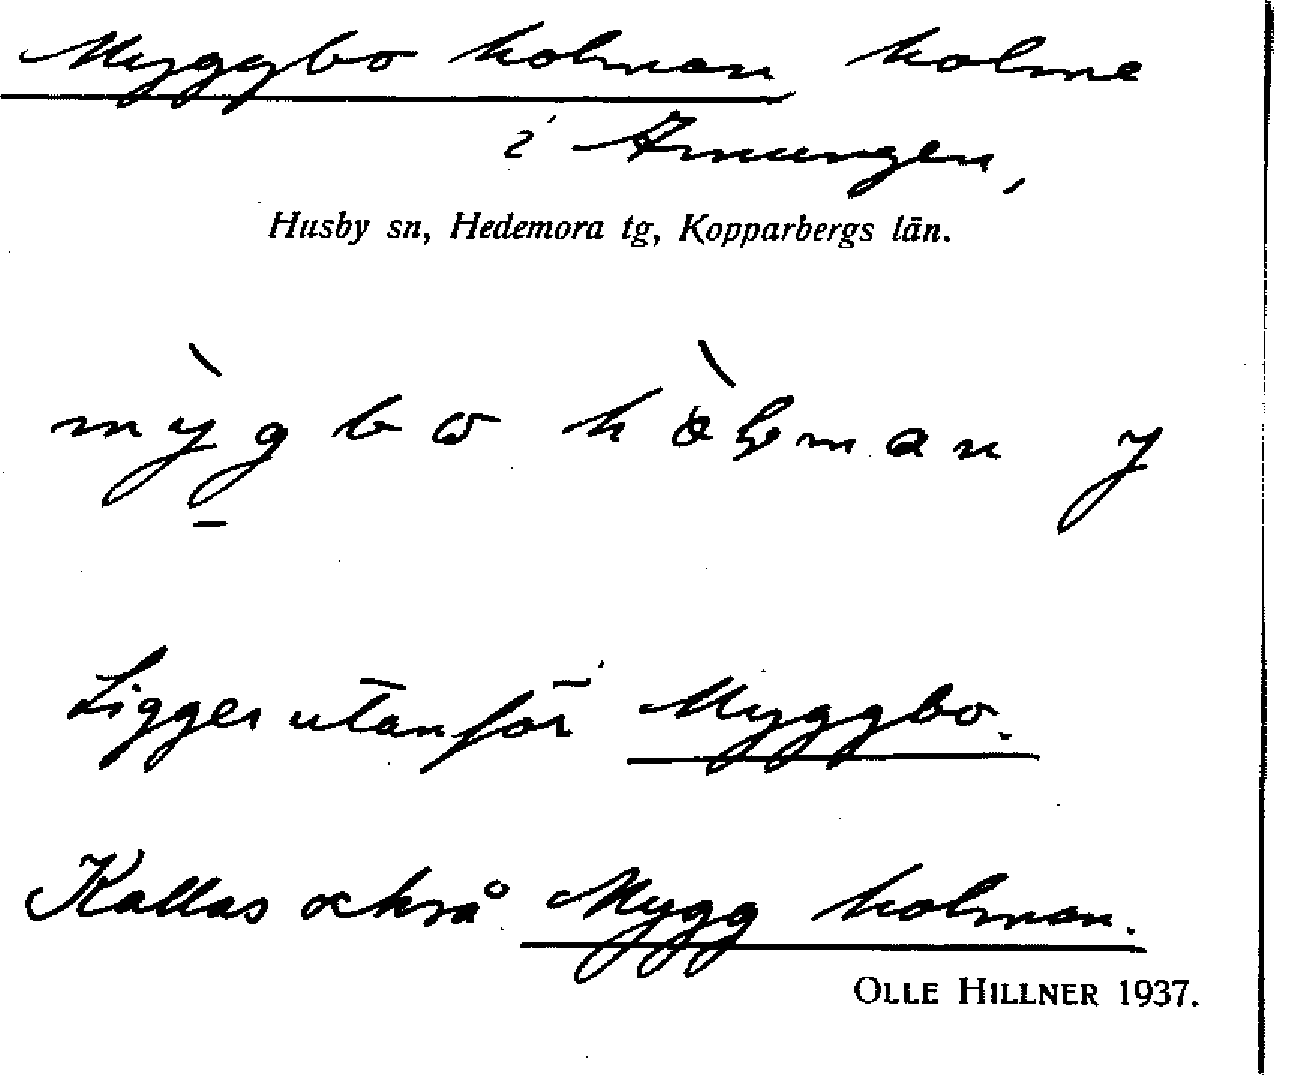 Myggbo holman holme
i Amungen,
Husby sn, Hedemora tg, Kopparbergs län.
Ligger utanför Myggbo.
Kallas också Mygg holman.
OLLE HILLNER 1937.